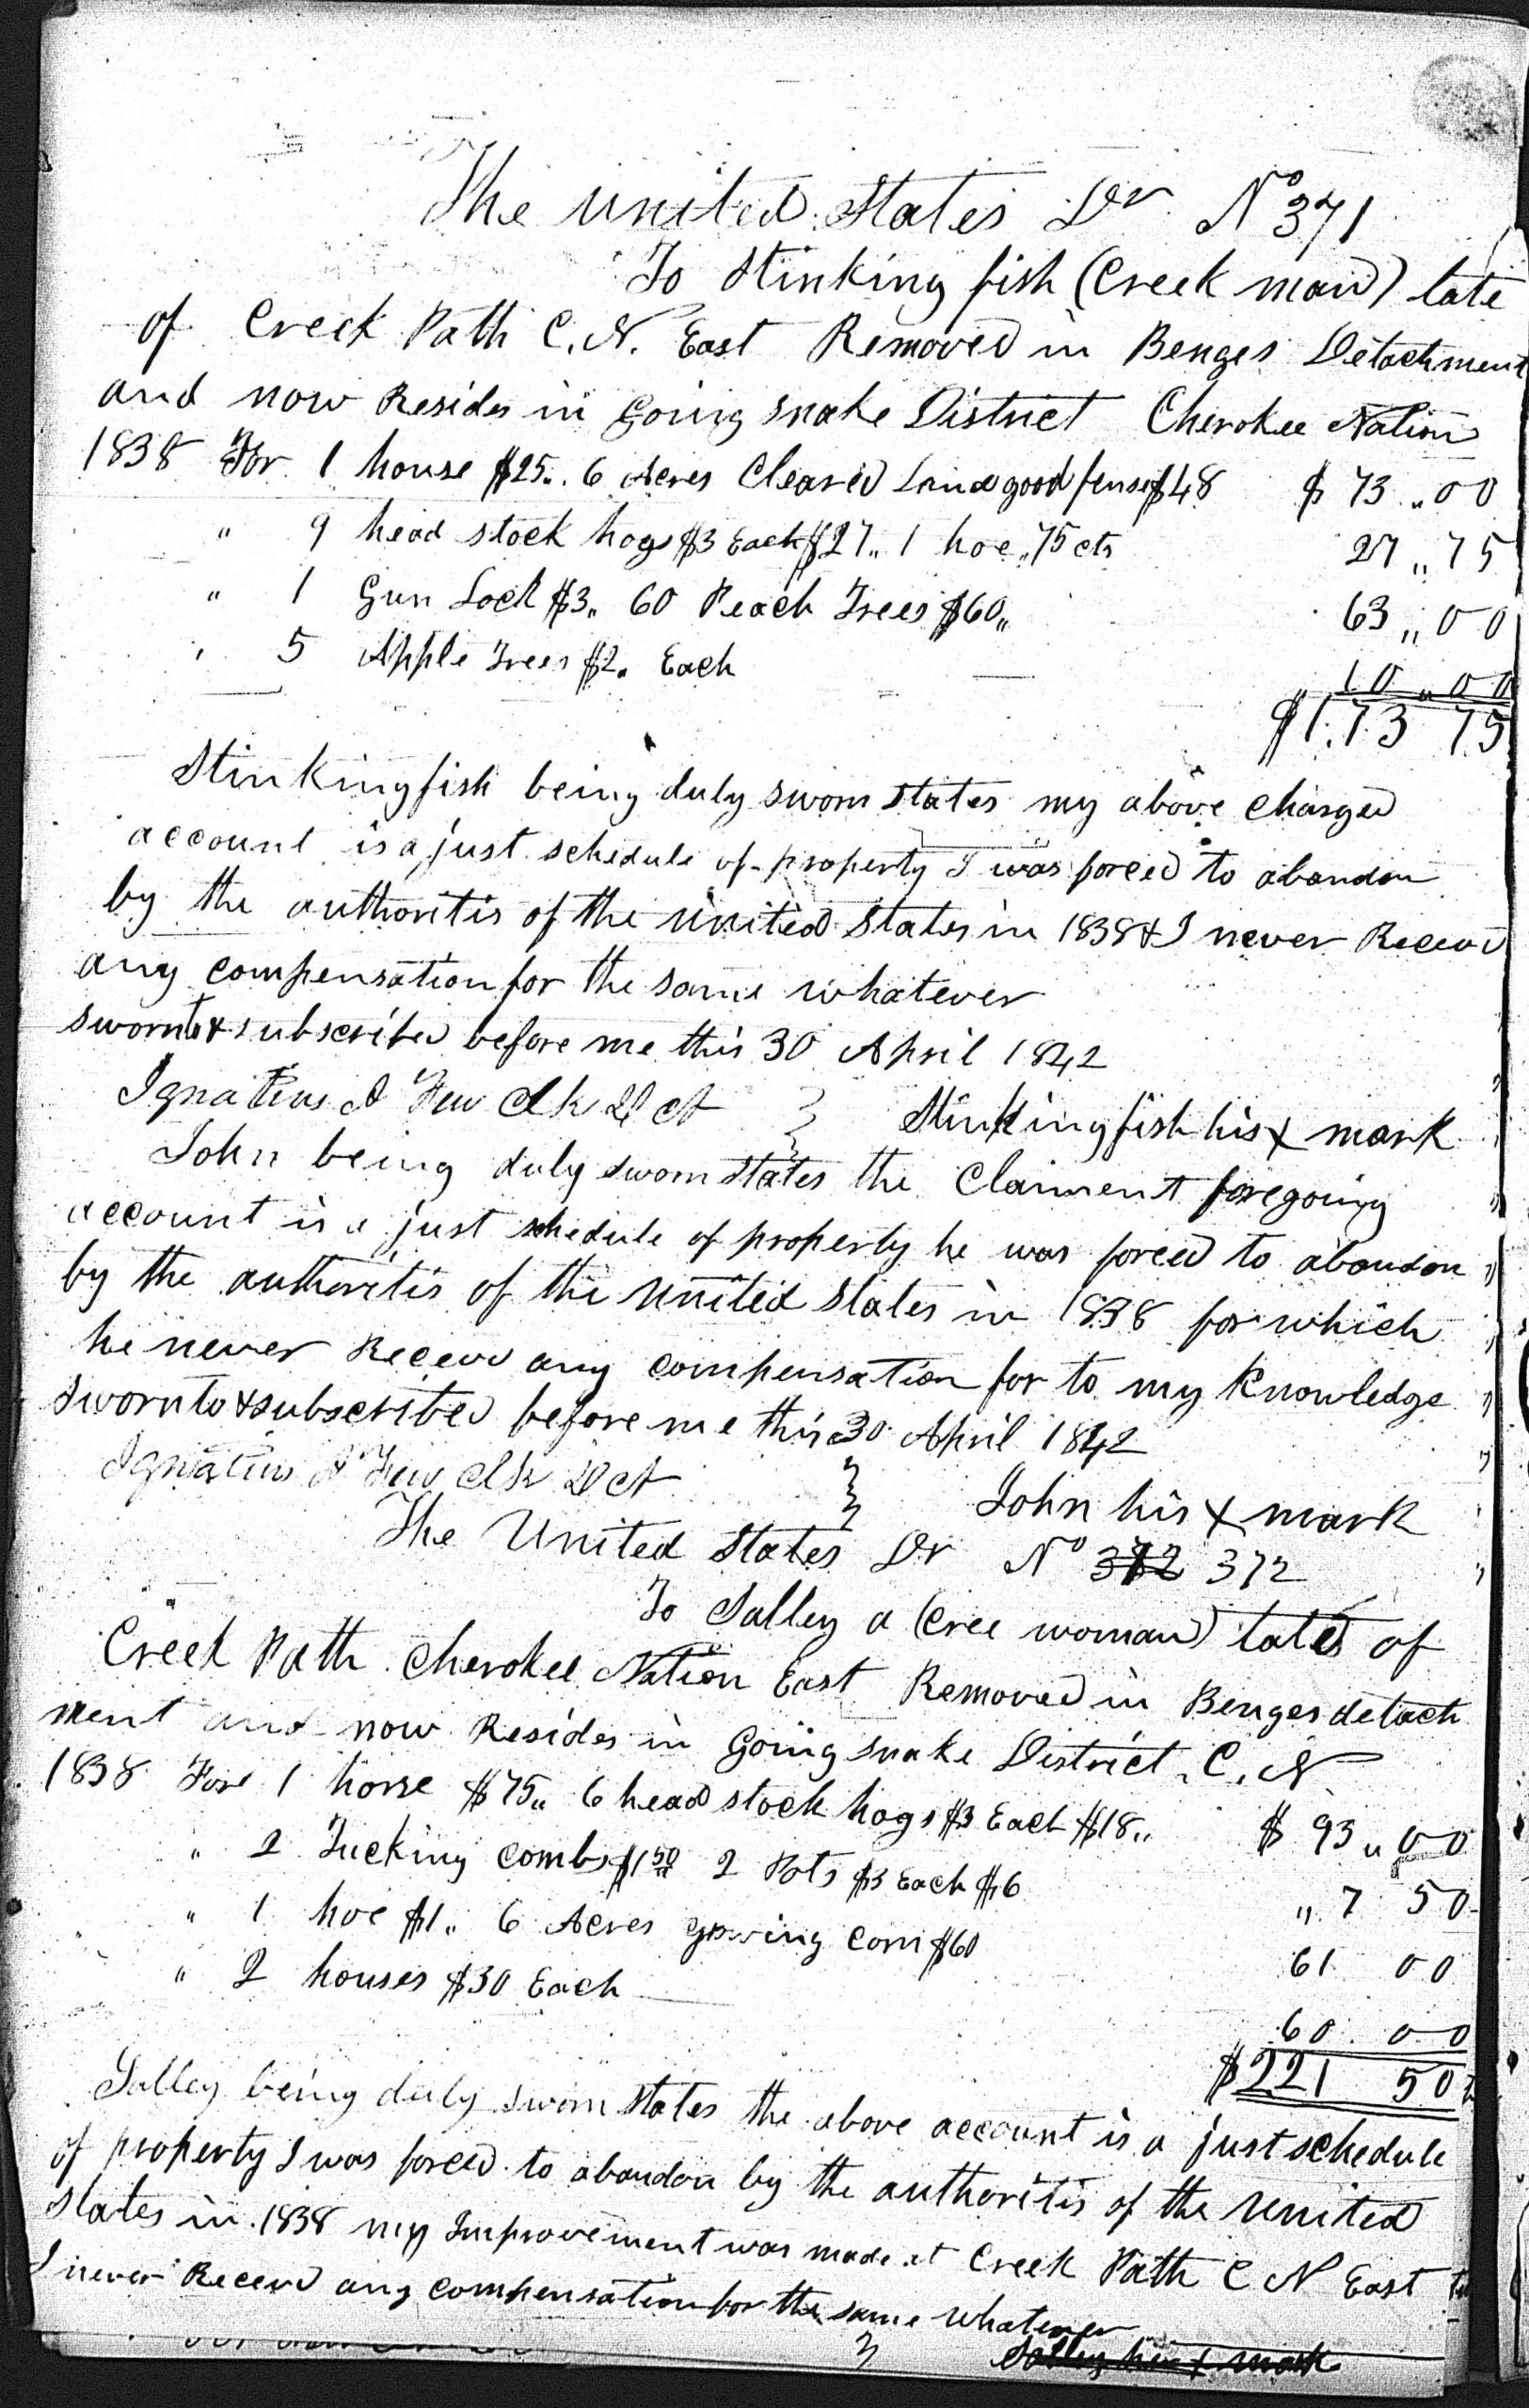 The United States Dr No 371
To Stinking fish (Creek man) late
of Creek Path C. N. East Removed in Benges Detachment
and now Resides in Going Snake District Cherokee Nation
1838 For 1 house $25.. 6 Acres Cleared Land good fense $48 $ 73 .. 00
" 9 head stock hogs $3 Each $27.. 1 hoe .. 75 cts 27 .. 75
" 1 Gun Lock $3.. 60 Peach Trees $60.. 63 .. 00
" 5 Apple Trees $2. Each 10 .. 00
$173 75
Stinkingfish being duly sworn states my above charged
account is a just schedule of property I was forced to abandon
by the authoritis of the United States in 1838 & I never Recevd
any compensation for the same whatever
sworn to & subscribed before me this 30 April 1842
Ignatius A Few Clk
Stinkingfish his x mark
John being duly sworn states the Claiment foregoing
account is a just schedule of property he was forced to abandon
by the authoritis of the United States in 1838 for which
he never Recevd any compensation for to my Knowledge
sworn to & subscribed before me this 30 April 1842
Ignatius A Few Clk
John his x mark
The United States Dr No 372 372
To Salley a (Cree woman) late of
Creek Path Cherokee Nation East Removed in Benges detach
ment and now Resides in Going snake District C. N
1838 For 1 horse $75.. 6 head stock hogs $3 Each $18.. $ 93 .. 00
" 2 Tucking combs $1 50 2 Pots $3 Each $6 " 7 50
" 1 hoe $1.. 6 Acres growing Corn $60 61 00
" 2 houses $30 Each 60 00
$221 50
Salley being duly sworn states the above account is a just schedule
of property I was forced to abandon by the authoritis of the United
States in 1838 my Improvement was made at Creek Path C N East
I never Recevd any compensation for the same whatever
Salley her x mark